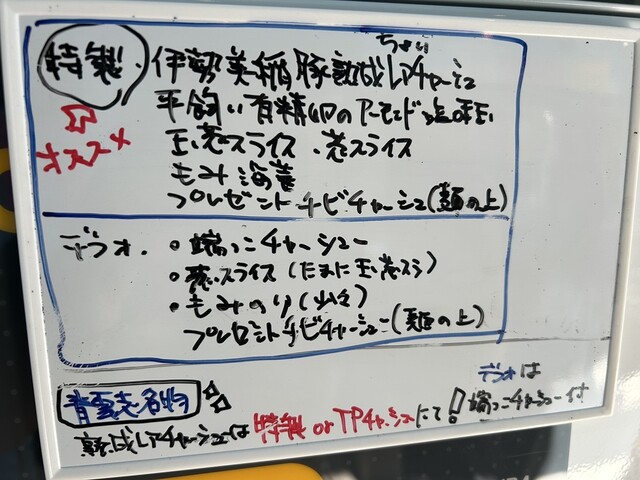 特製・伊勢美稲豚熟成ちょいレアチャーシュー
平飼い有精卵のアーモンド味玉
玉葱スライス・葱スライス
もみ海苔
プレゼントチビチャーシュ(麺の上)
オススメ
デフォ・ •端っこチャーシュー
•葱スライス(たまに玉葱スラ)
•もみのり(少々)
プレゼントチビチャーシュー(麺の上)
青雲志名物☆
熟成レアチャーシューは特製orTPチャーシューにて!
デフォは
端っこチャーシュー付